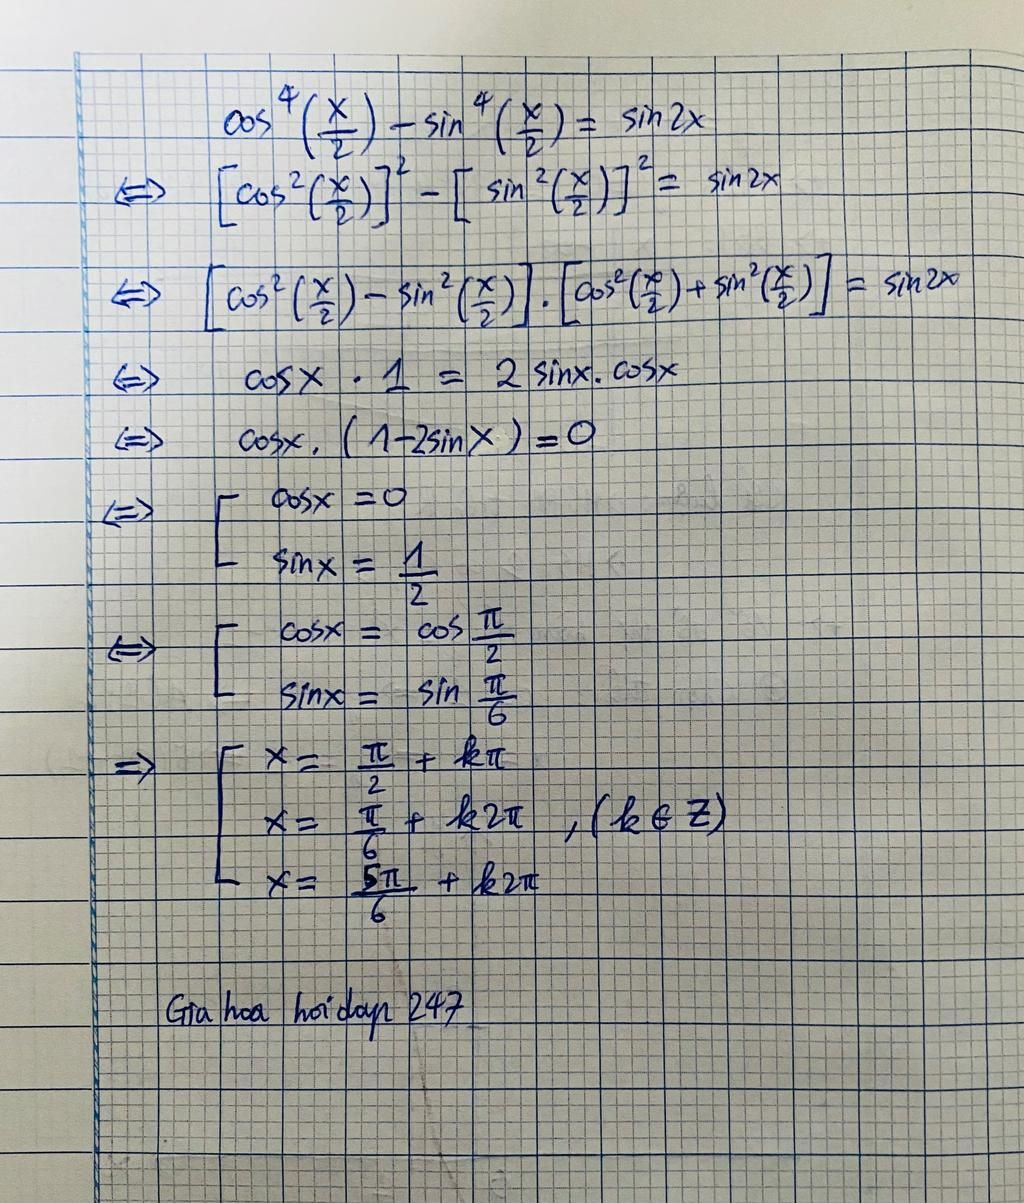 cos⁴(x/2) − sin⁴(x/2) = sin2x
⇔ [cos²(x/2)]² − [sin²(x/2)]² = sin2x
⇔ [cos²(x/2) − sin²(x/2)] . [cos²(x/2) + sin²(x/2)] = sin2x
⇔ cosx . 1 = 2 sinx. cosx
⇔ cosx. (1−2sinx) = 0
⇔ [ cosx = 0
sinx = 1/2
⇔ [ cosx = cos π/2
sinx = sin π/6
⇒ [ x = π/2 + kπ
x = π/6 + k2π , (k ∈ Z)
x = 5π/6 + k2π
Gia hoa hoidap 247